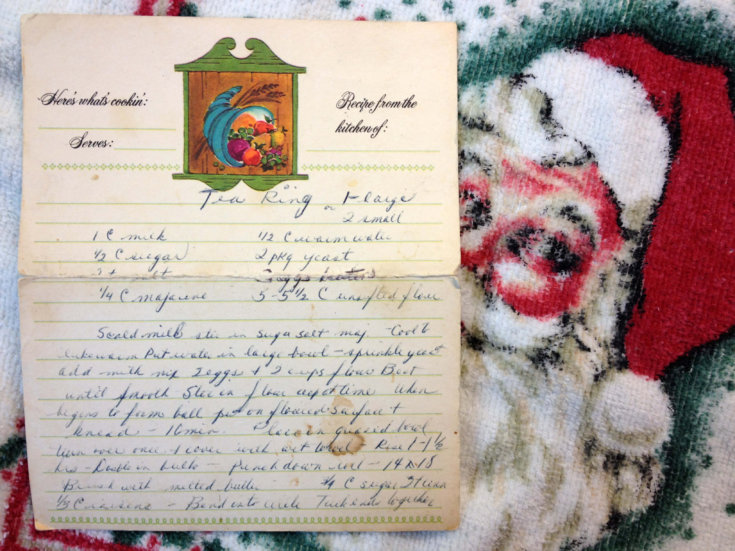 Here's what's cookin:
Recipe from the
kitchen of:
Serves:
Tea Ring or 1 large
2 small
1 C milk 1/2 C warm water
1/2 C sugar 2 pkg yeast
salt 2 eggs beaten
1/4 C majarine 5-5 1/2 C unsifted flour
Scald milk stir in sugar salt maj - Cool to
lukewarm Put water in large bowl - sprinkle yeast
add milk mix 2 eggs + 2 cups flour Beat
until smooth Stir in flour cup at time When
begins to form ball put on floured surface +
knead - 10 min. Place in greased bowl
turn over once & cover with wet towel Rise 1-1 1/2
hrs - Double in bulk - Punch down roll - 14 x 18
Brush with melted butter - C sugar 2 t cinn
C raisins - Bend into circle Tuck ends together